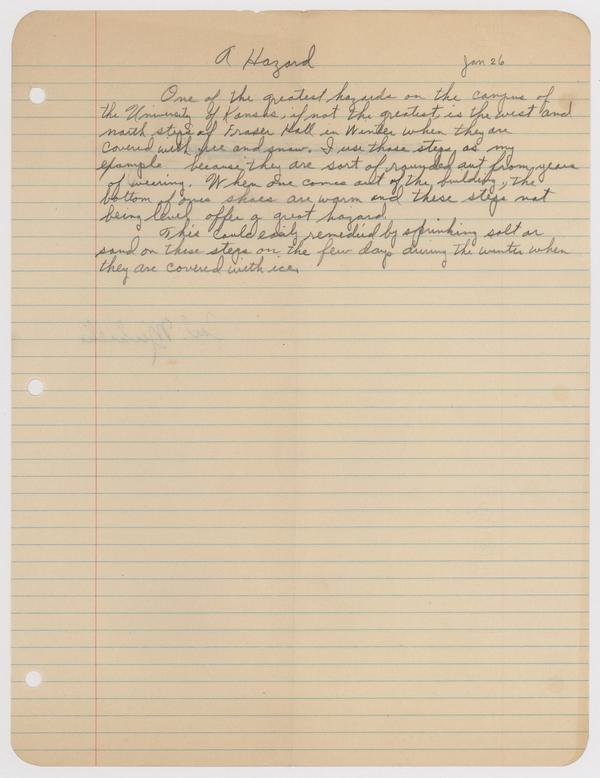 A Hazard Jan 26
One of the greatest hazards on the campus of
the University of Kansas, if not the greatest is the west and
north steps of Fraser Hall in Winter when they are
covered with ice and snow. I use those steps, as my
example because they are sort of rounded out from, years
of wearing. When one comes out of the building, the
bottom of ones shoes are warm and these steps not
being level, offer a great hazard.
This could easily remedied by sprinking salt or
sand on these steps on the few days during the winter when
they are covered with ice.